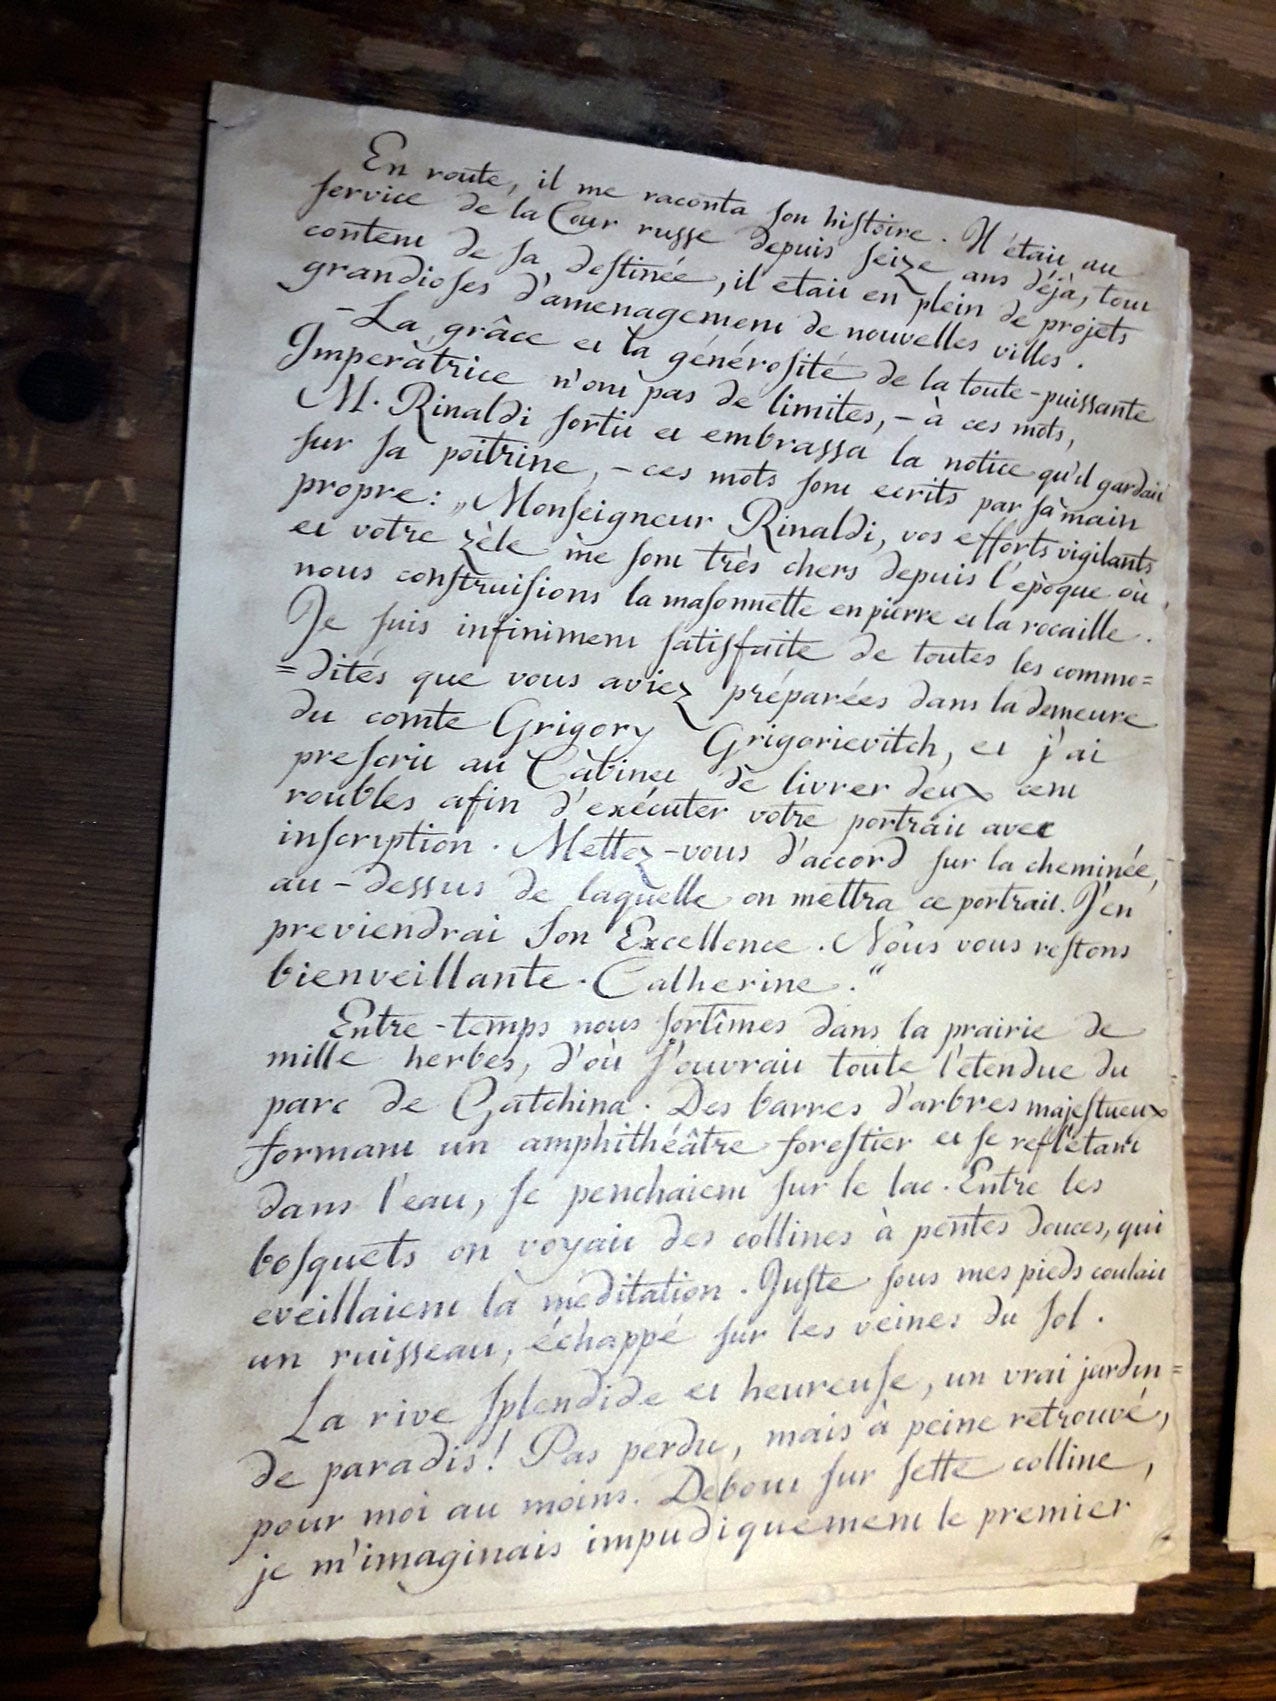 En route, il me raconta son histoire. Il était au
service de la Cour russe depuis seize ans déjà, tout
content de sa destinée, il etait en plein de projets
grandioses d'amenagement de nouvelles villes.
- La grâce et la générosité de la toute-puissante
Imperatrice n'ont pas de limites, - à ces mots,
M. Rinaldi sortit et embrassa la notice qu'il gardait
sur sa poitrine, - ces mots sont ecrits par sa main
propre: „Monseigneur Rinaldi, vos efforts vigilants
et votre zèle me sont très chers depuis l'epòque où
nous construisions la masonnette en pierre et la rocaille.
Je suis infiniment satisfaite de toutes les commo=
=dités que vous aviez préparées dans la demeure
du comte Grigory Grigorievitch, et j'ai
prescrit au Cabinet de livrer deux cent
roubles afin d'exécuter votre portrait avec
inscription. Mettez-vous d'accord sur la cheminée,
au-dessus de laquelle on mettra ce portrait. J'en
previendrai Son Excellence. Nous vous restons
bienveillante. Catherine."
Entre-temps nous sortîmes dans la prairie de
mille herbes, d'où s'ouvrait toute l'etendue du
parc de Gatchina. Des barres d'arbres majestueux
formant un amphithéâtre forestier et se reflétant
dans l'eau, se penchaient sur le lac. Entre les
bosquets on voyait des collines à pentes douces, qui
eveillaient la meditation. Juste sous mes pieds coulait
un ruisseau, échappé sur les veines du sol.
La rive splendide et heureuse, un vrai jardin=
de paradis! Pas perdu, mais à peine retrouvé,
pour moi au moins. Debout sur sette colline,
je m'imaginais impudiquement le premier